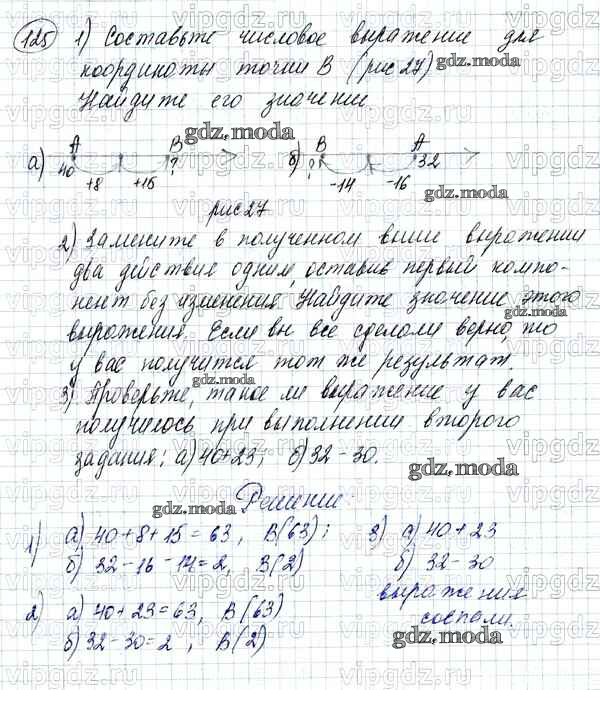 125 1) Составьте числовое выражение для
координаты точки В (рис 27)
Найдите его значение
а) А 40 +8 +15 В ?
б) В ? -14 -16 А 32
рис 27
2) Замените в полученном выше выражении
два действия одним, оставив первый компо-
нент без изменения. Найдите значение этого
выражения. Если вы все сделали верно, то
у вас получится тот же результат.
3) Проверьте, такое ли выражение у вас
получилось при выполнении второго
задания: а) 40+23; б) 32-30.
Решение:
1) а) 40+8+15=63, В(63);
б) 32-16-14=2, В(2)
2) а) 40+23=63, В(63)
б) 32-30=2, В(2)
3) а) 40+23
б) 32-30
выражения
совпали.
gdz.moda
vipgdz
vipgdz.com